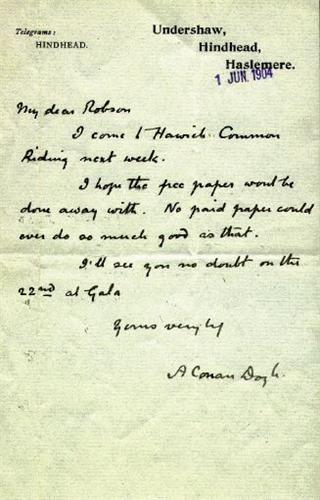 Telegrams:
HINDHEAD.
Undershaw,
Hindhead,
Haslemere.
1 JUN. 1904
My dear Robson
I come to Hawick Common
Riding next week.
I hope the free paper wont be
done away with. No paid paper could
ever do so much good as that.
I'll see you no doubt on the
22nd at Gala
Yours very truly
A Conan Doyle.